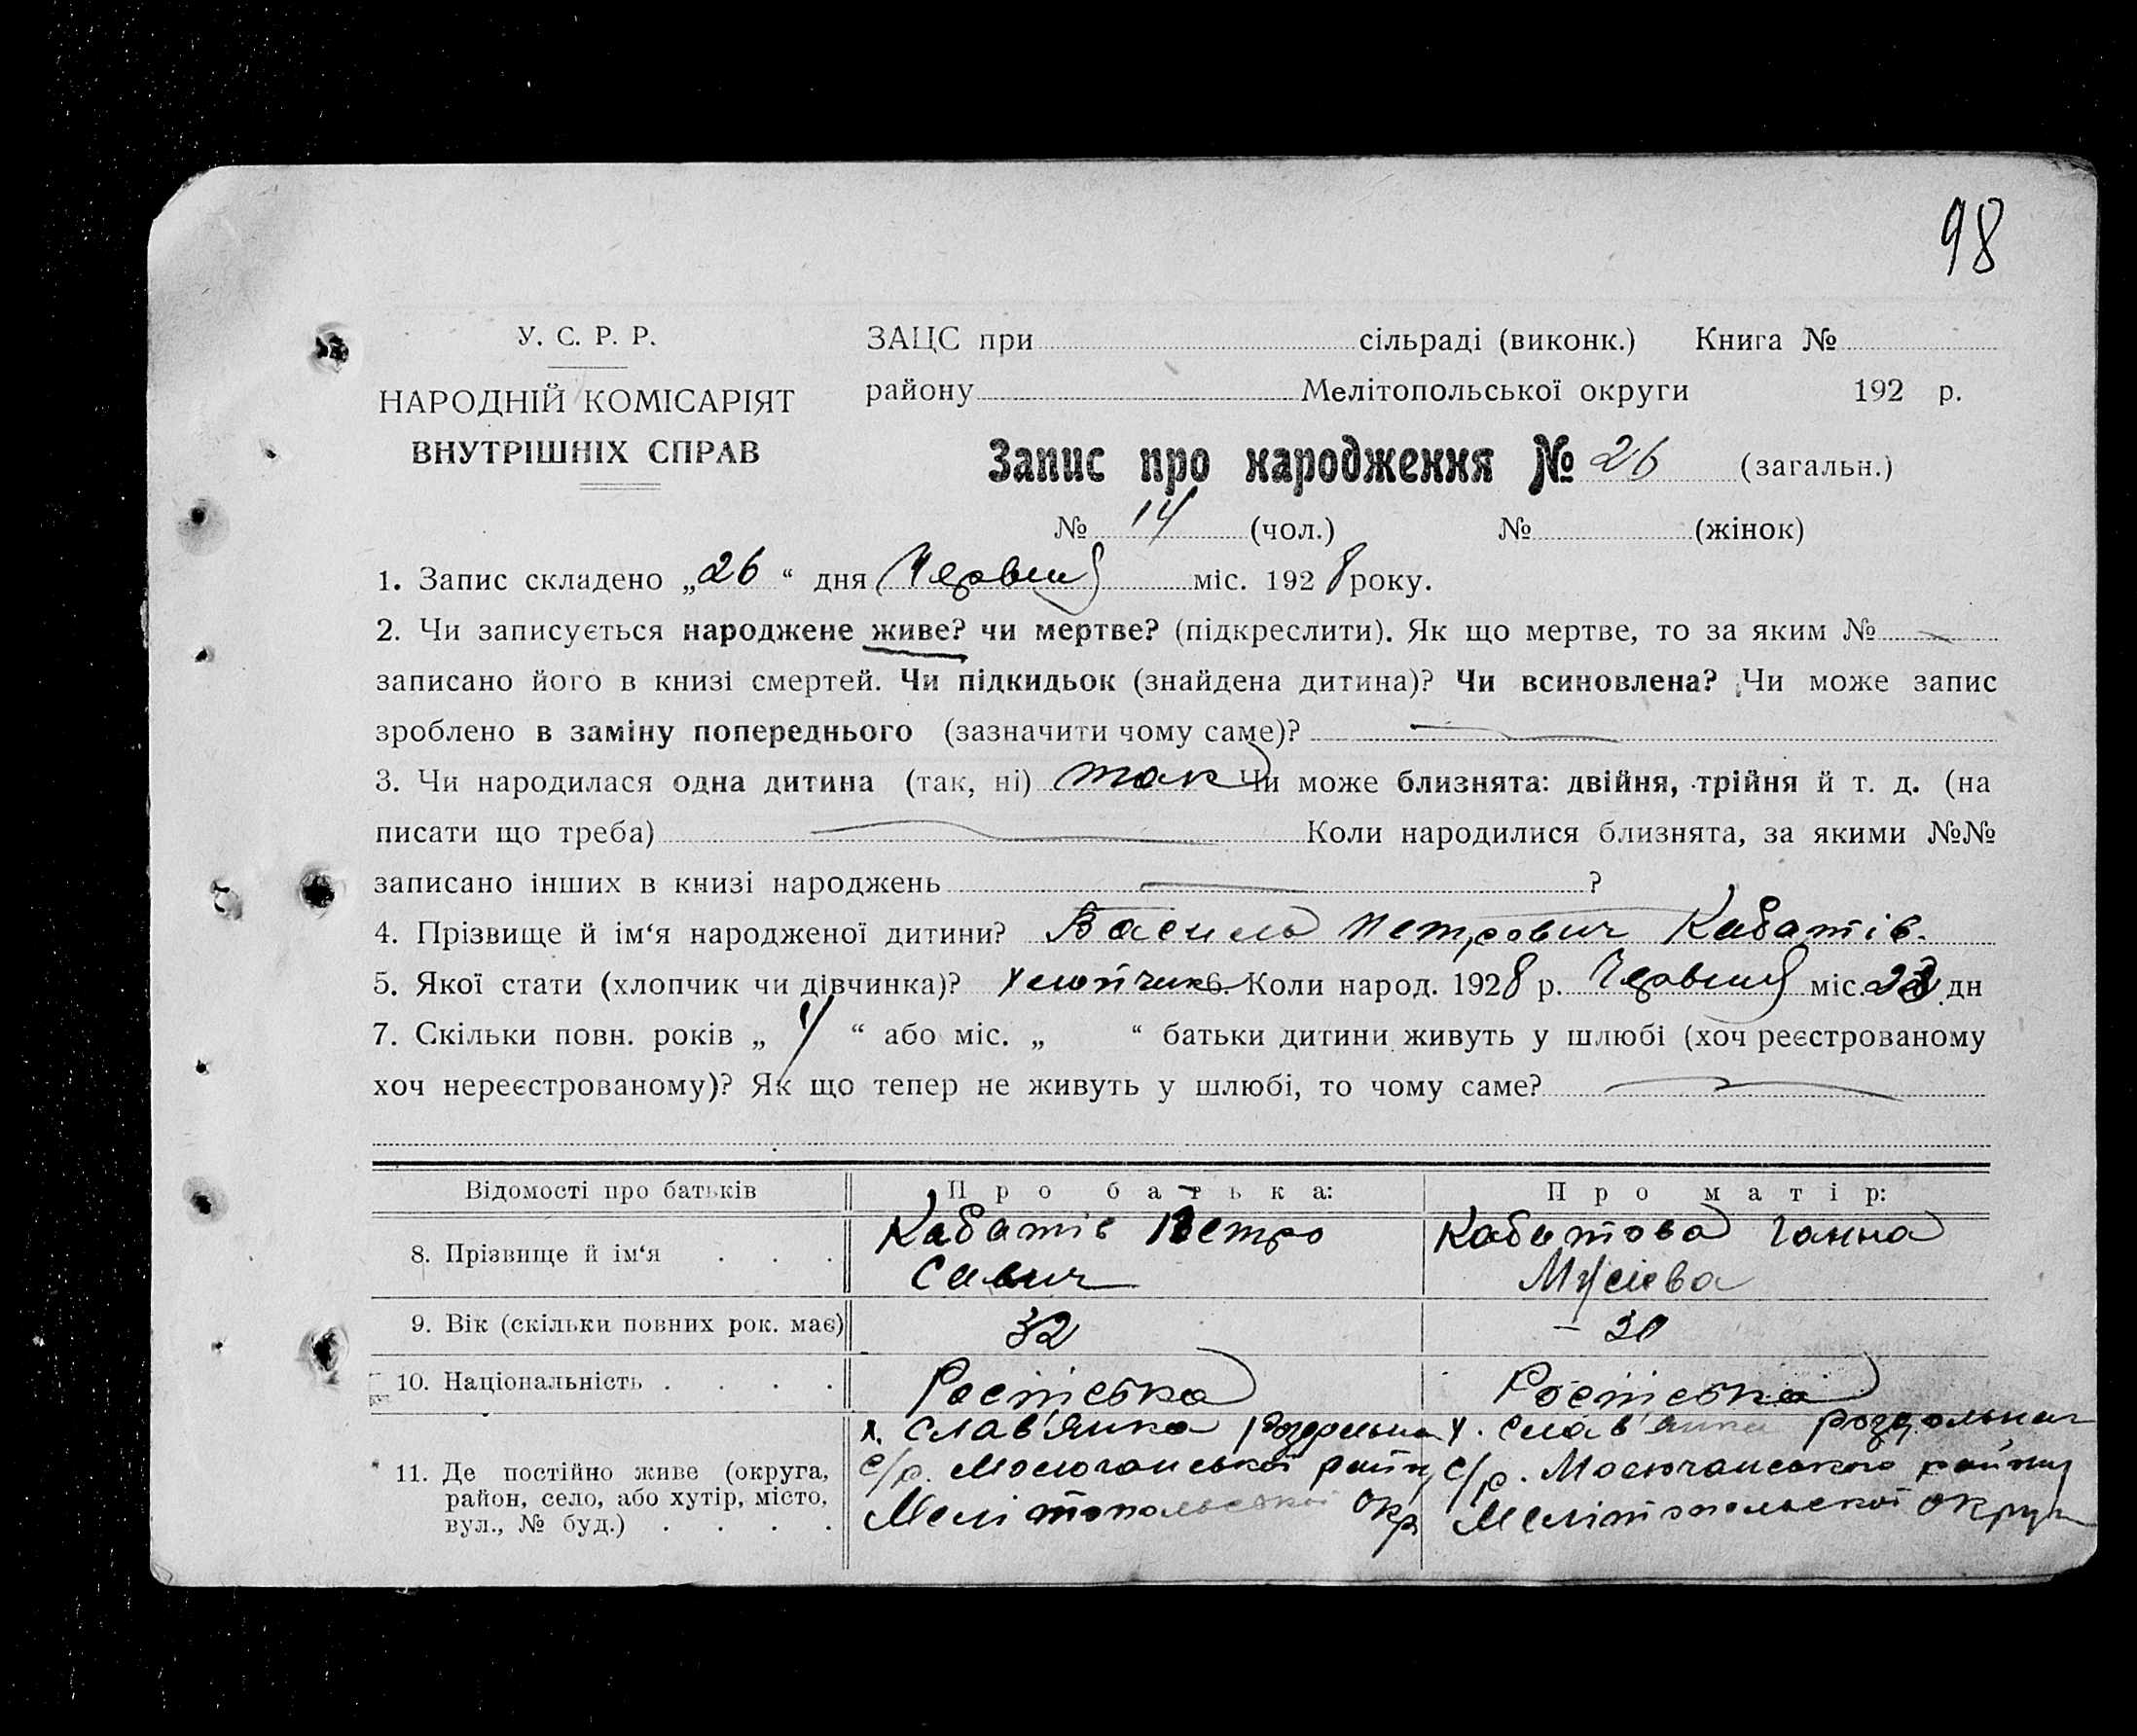 98
У. С. Р. Р.
НАРОДНІЙ КОМІСАРІЯТ
ВНУТРІШНІХ СПРАВ
ЗАЦС при сільраді (виконк.) Книга №
району Мелітопольської округи 192 р.
Запис про народження № 26 (загальн.)
№ 14 (чол.) № (жінок)
1. Запис складено „26“ дня Червня міс. 1928 року.
2. Чи записується народжене живе? чи мертве? (підкреслити). Як що мертве, то за яким №
записано його в книзі смертей. Чи підкидьок (знайдена дитина)? Чи всиновлена? Чи може запис
зроблено в заміну попереднього (зазначити чому саме)?
3. Чи народилася одна дитина (так, ні) так Чи може близнята: двійня, трійня й т. д. (на
писати що треба) Коли народилися близнята, за якими №№
записано інших в книзі народжень ?
4. Прізвище й ім‘я народженої дитини? Василь Петрович Кабатів.
5. Якої стати (хлопчик чи дівчинка)? хлопчик 6. Коли народ. 1928 р. Червня міс. дн
7. Скільки повн. років „ “ або міс. „ “ батьки дитини живуть у шлюбі (хоч реєстрованому
хоч нереєстрованому)? Як що тепер не живуть у шлюбі, то чому саме?
Відомості про батьків Про батька: Про матір:
8. Прізвище й ім‘я . . . Кабатів Петро Кабатова Ганна
Савич Мусієва
9. Вік (скільки повних рок. має) 32 30
10. Національність . . . .
х. Слав'янка х. Слав'янка
11. Де постійно живе (округа, с/р. с/р.
район, село, або хутір, місто, Мелітопольської окр Мелітопольскої округи
вул., № буд.) . . . .